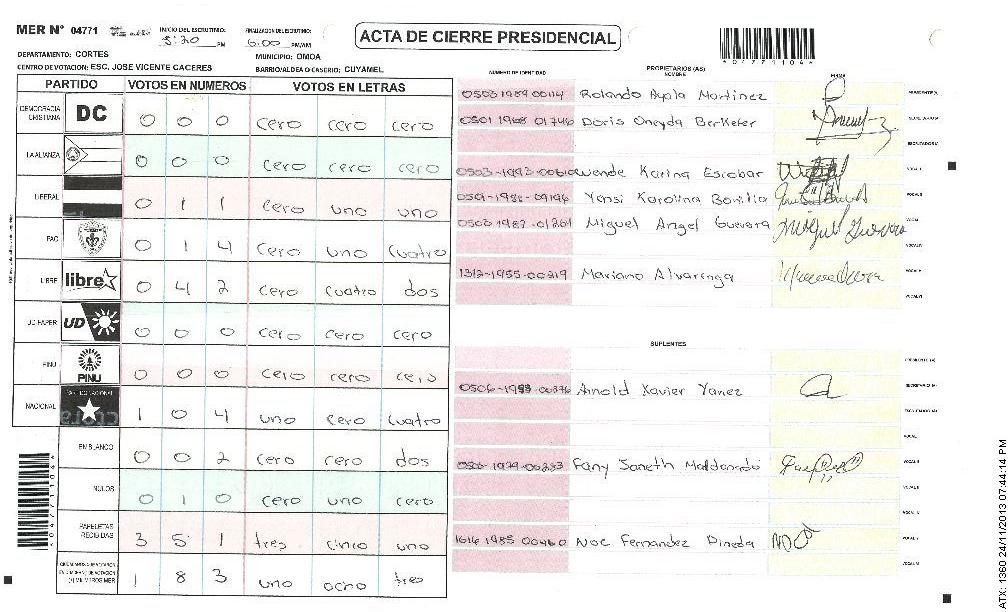 MER N° 04771
INICIO DEL ESCRUTINIO: 5:20 PM
FINALIZACION DEL ESCRUTINIO: 6:00 PM/AM
ACTA DE CIERRE PRESIDENCIAL
*04771104*
DEPARTAMENTO: CORTES
MUNICIPIO: OMOA
CENTRO DE VOTACION: ESC. JOSE VICENTE CACERES
BARRIO/ALDEA O CASERIO: CUYAMEL
PARTIDO VOTOS EN NUMEROS VOTOS EN LETRAS
DEMOCRACIA CRISTIANA DC 0 0 0 cero cero cero
LA ALIANZA 0 0 0 cero cero cero
LIBERAL 0 1 1 cero uno uno
PAC 0 1 4 cero uno cuatro
LIBRE libre 0 4 2 cero cuatro dos
UD-FAPER UD 0 0 0 cero cero cero
PINU PINU 0 0 0 cero cero cero
NACIONAL 1 0 4 uno cero cuatro
EN BLANCO 0 0 2 cero cero dos
NULOS 0 1 0 cero uno cero
PAPELETAS RECIBIDAS 3 5 1 tres cinco uno
1 8 3 uno ocho tres
*04771104*
NUMERO DE IDENTIDAD
PROPIETARIOS (AS)
NOMBRE
FIRMA
0503 1989 00114 Rolando Ayala Martinez PRESIDENTE (A)
0501 1968 01746 Doris Oneyda SECRETARIO (A)
ESCRUTADOR (A)
Karina Escobar VOCAL I
Karolina Bonilla VOCAL II
Miguel Angel Guevara VOCAL
VOCAL IV
1312-1955-00219 Mariano Alvarenga VOCAL V
VOCAL VI
SUPLENTES
PRESIDENTE (A)
Arnold Xavier Yanez SECRETARIO (A)
ESCRUTADOR (A)
VOCAL
Fany Janeth Maldonado VOCAL II
VOCAL III
VOCAL IV
1614 1985 00460 Noe Fernandez Pineda VOCAL V
VOCAL VI
ATX: 1360 24/11/2013 07:44:14 PM